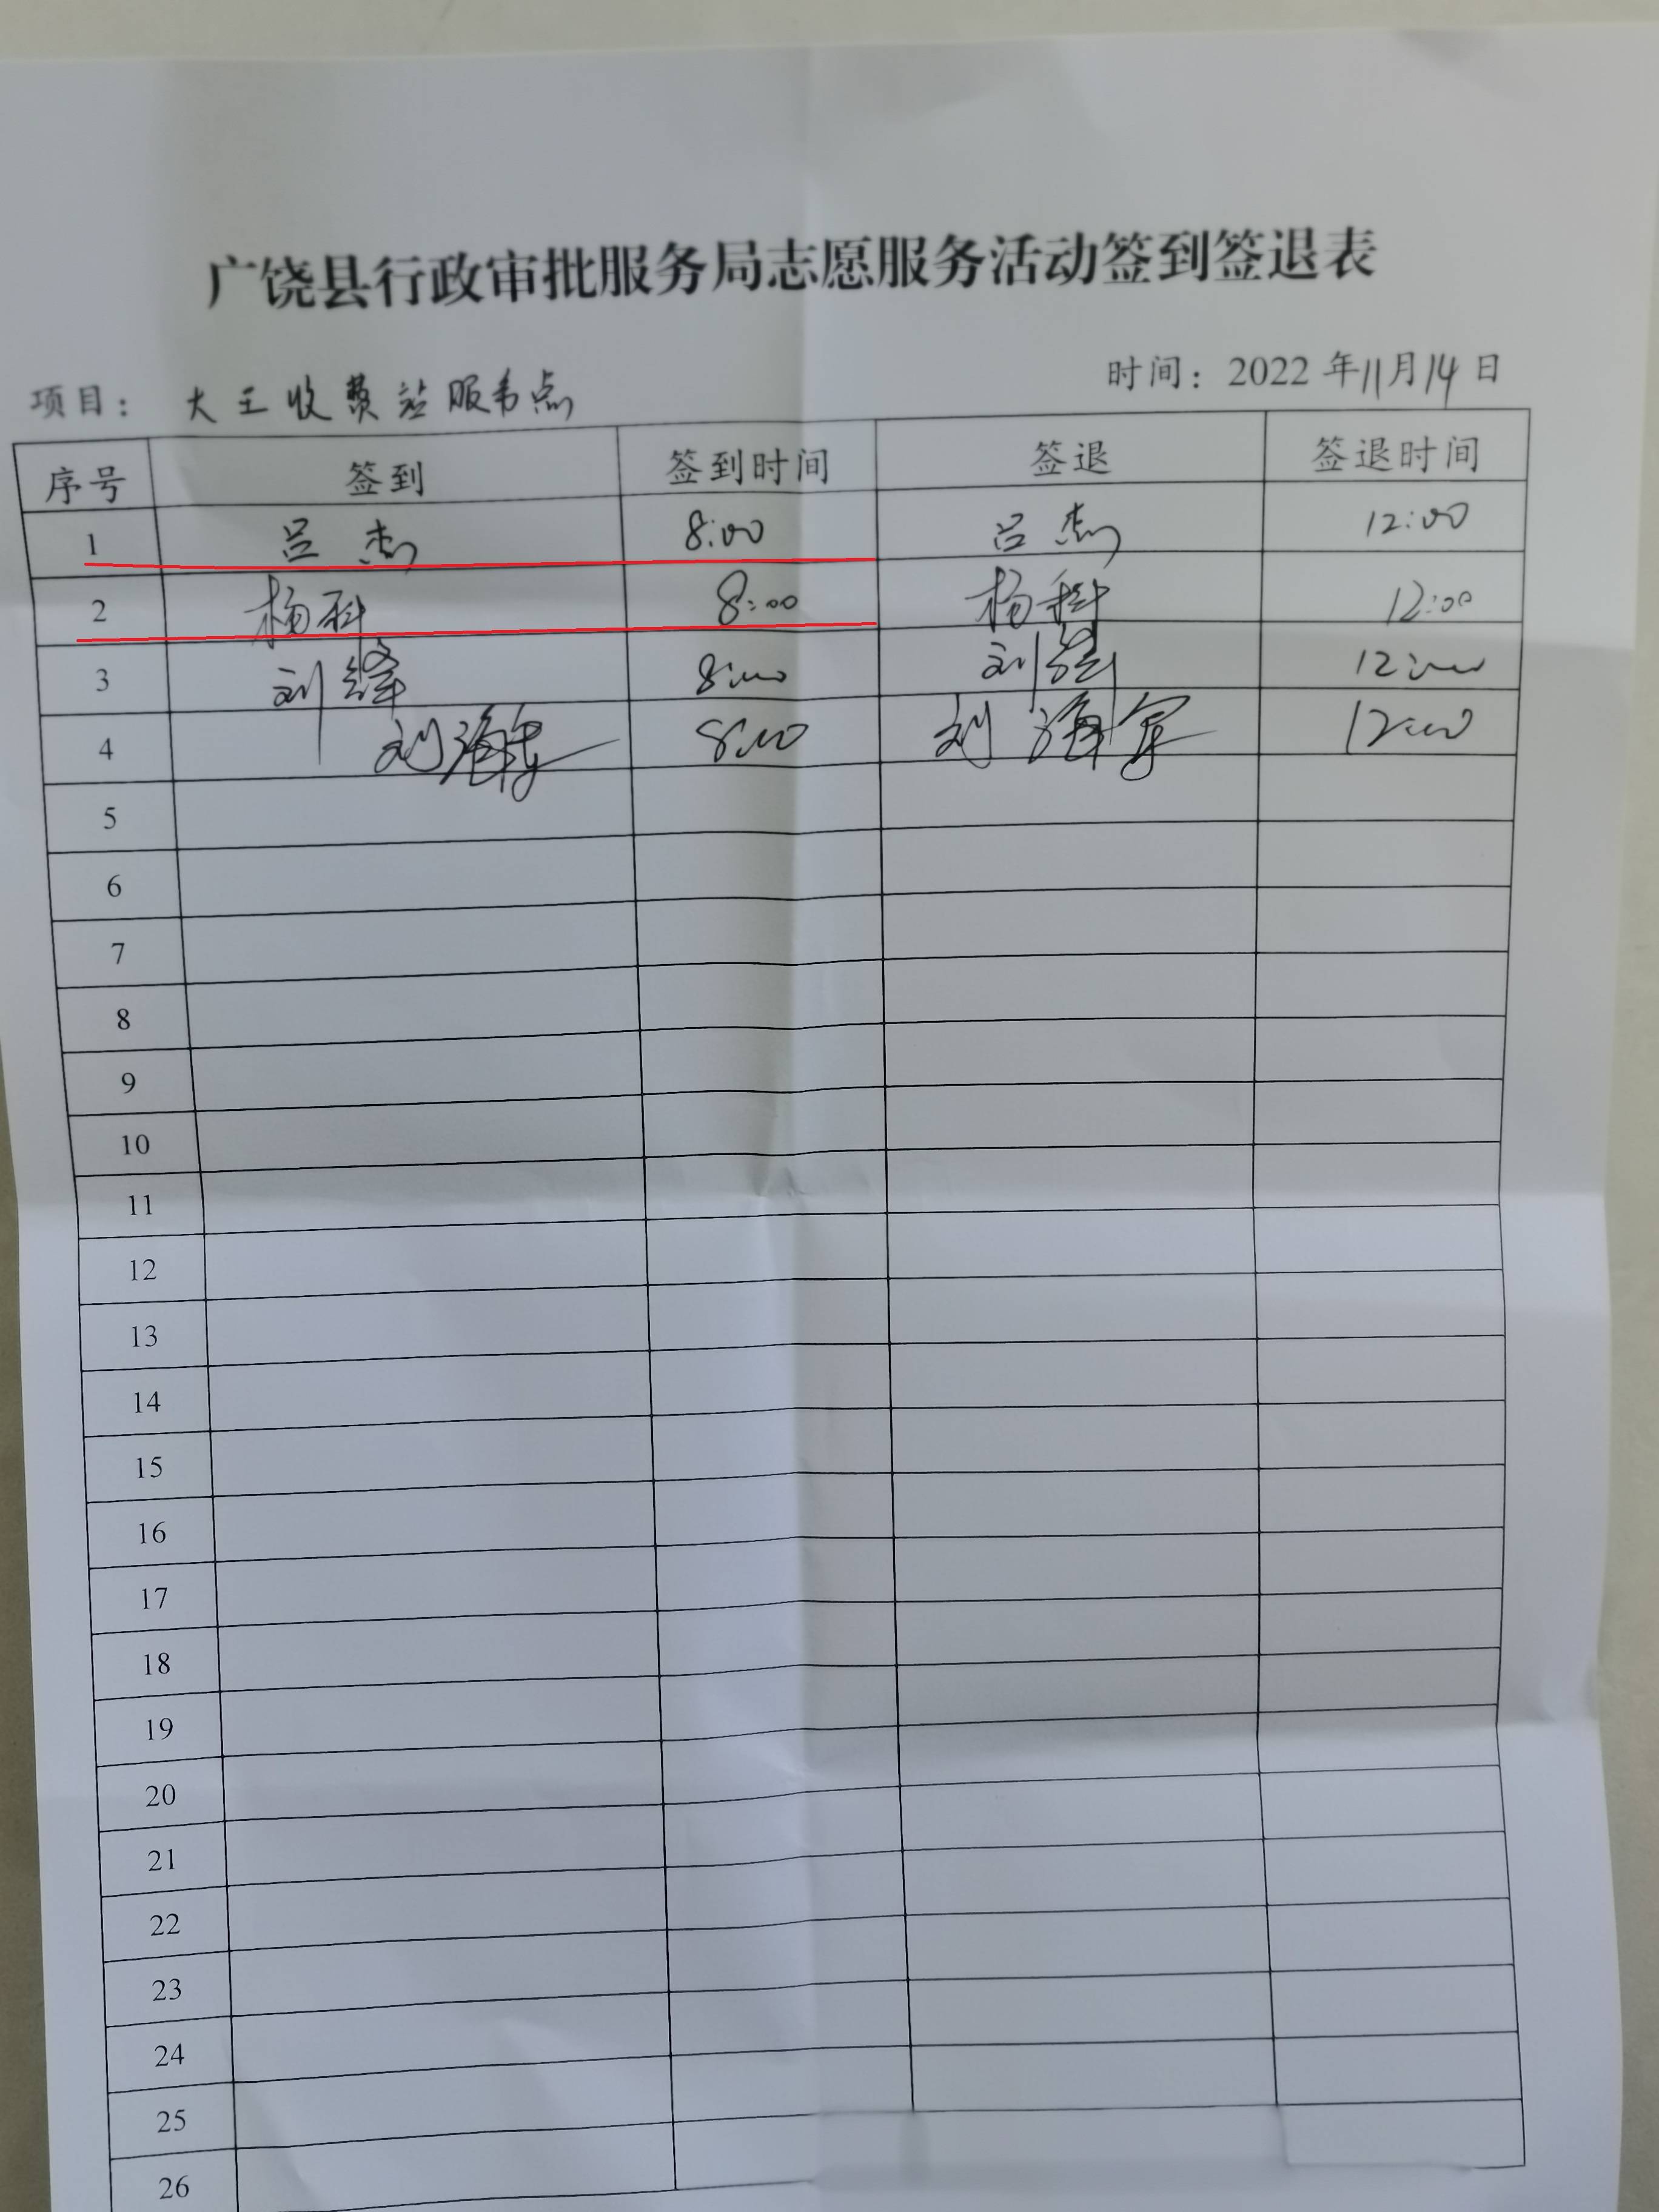 广饶县行政审批服务局志愿服务活动签到签退表
项目: 大王收费站服务点 时间: 2022 年 11 月 14 日
序号 签到 签到时间 签退 签退时间
1 吕杰 8:00 吕杰 12:00
2 杨科 8:00 杨科 12:00
3 刘锋 8:00 刘锋 12:00
4 刘海军 8:00 刘海军 12:00
5
6
7
8
9
10
11
12
13
14
15
16
17
18
19
20
21
22
23
24
25
26